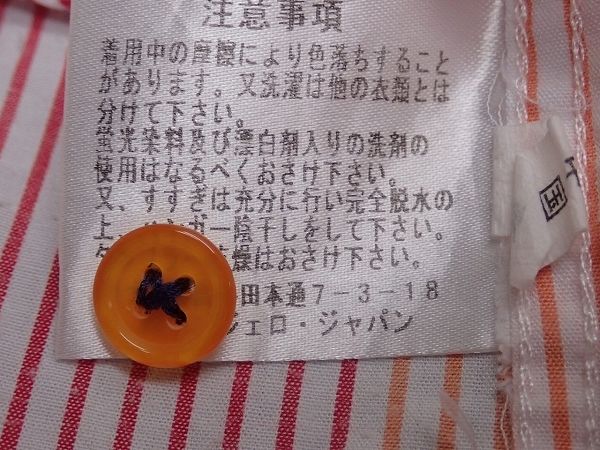 注意事項
着用中の摩擦により色落ちすること
があります。又洗濯は他の衣類とは
分けて下さい。
蛍光染料及び漂白剤入りの洗剤の
使用はなるべくおさけ下さい。
又、すすぎは充分に行い完全脱水の
上、ハンガー陰干しをして下さい。
燥はおさけ下さい。
田本通7-3-18
ジェロ・ジャパン